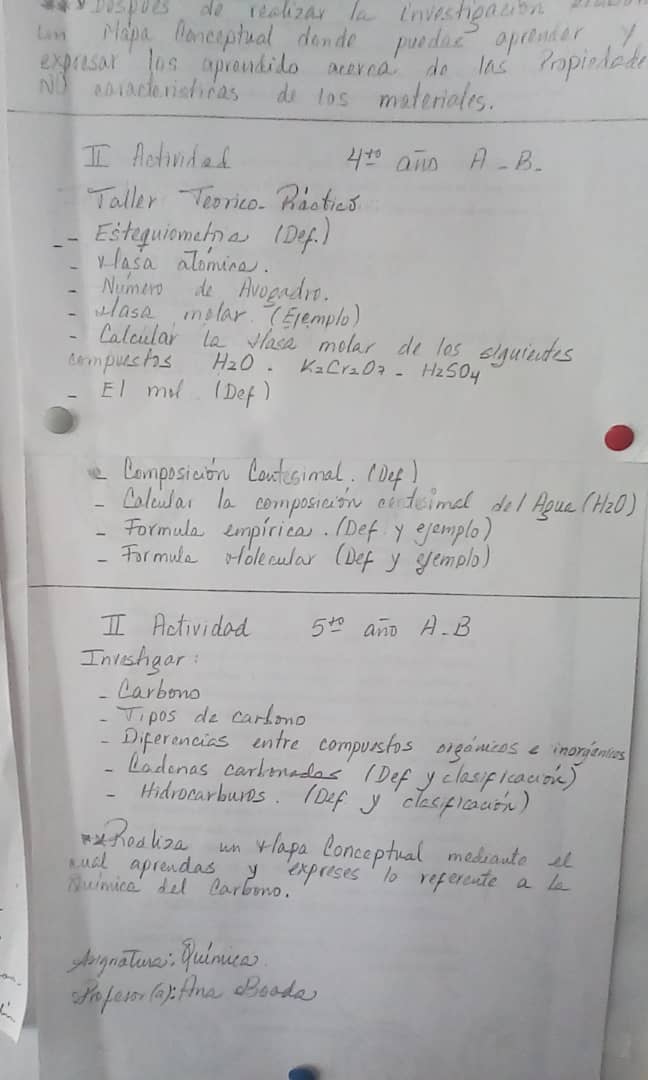 ** Después de realizar la investigación
un Mapa Conceptual donde puedas aprender y
expresar los aprendido acerca de las Propiedade
NO características de los materiales.
II Actividad 4to año A-B-
Taller Teorico-Práctico
- Estequiometria (Def.)
- Masa atómica.
- Número de Avogadro.
- Masa molar. (Ejemplo)
- Calcular la Masa molar de los siguientes
compuestos H2O. K2Cr2O7 - H2SO4
- El mol (Def)
Composición Centesimal. (Def)
- Calcular la composición centesimal del Agua (H2O)
- Formula empírica. (Def y ejemplo)
- Formula Molecular (Def y ejemplo)
II Actividad 5to año A-B
Investigar:
- Carbono
- Tipos de carbono
- Diferencias entre compuestos orgánicos e inorgánicos
- Cadenas carbonadas (Def y clasificación)
- Hidrocarburos. (Def y clasificación)
** Realiza un Mapa Conceptual mediante el
cual aprendas y expreses lo referente a la
Química del Carbono.
Asignatura: Química
Profesor(a): Ana Boada